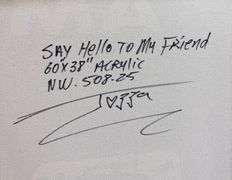 SAY Hello To My Friend
60"x38" ACRYLIC
NW. 508-25